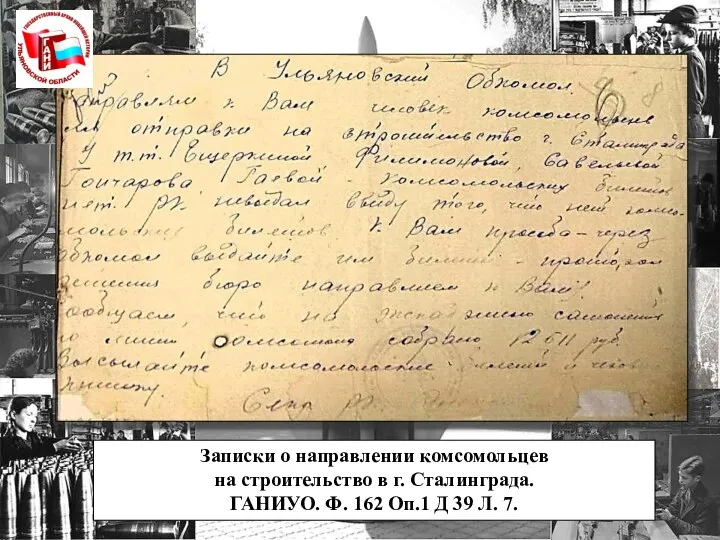 ГОСУДАРСТВЕННЫЙ АРХИВ НОВЕЙШЕЙ ИСТОРИИ
ГАНИ
УЛЬЯНОВСКОЙ ОБЛАСТИ
8
В Ульяновский Обкомол.
направляем к Вам человек комсомольцев
для отправки на строительство г. Сталинграда
У т.т. Ещеркиной, Филимоновой, Савельевой
Гончарова, Гаевой - комсомольских билетов
нет, РК невыдал ввиду того, что нет комсо-
мольских билетов. К Вам просьба - через
обкомол выдайте им билеты -
решения бюро направляем к Вам!
Сообщаем, что на
по линии комсомола собрано 12611 руб.
Высылайте комсомольские билеты и
книжку.
Секр РК
Записки о направлении комсомольцев
на строительство в г. Сталинграда.
ГАНИУО. Ф. 162 Оп.1 Д 39 Л. 7.